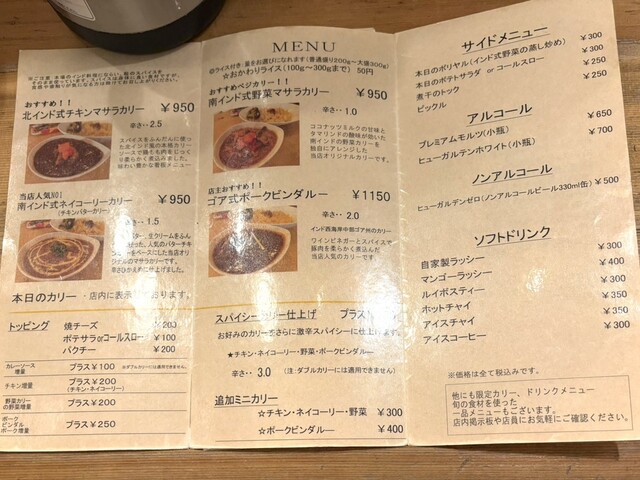 ※ご注意 本場のインド料理にならい、数種のスパイスを
北インド式チキンマサラカリー ¥950
おすすめ！！
辛さ‥2.5
スパイスをふんだんに使っ
た北インド風の本格カリー
ソースで鶏もも肉をじっく
り柔らかく煮込みました。
味わい豊かな看板メニュー
当店人気NO1
南インド式ネイコーリーカリー ¥950
(チキンバターカリー)
辛さ‥1.5
バター、生クリームをふん
人気のバターチキン
ベースにした当店オリ
ジナルのマサラカリーです。
辛さひかえめに仕上げました。
本日のカリー ・店内に表示しております。
トッピング
焼チーズ ¥200
ポテサラorコールスロー ¥100
パクチー ¥200
カレーソース増量 プラス¥100 ※ダブルカリーには適用できません。
チキン増量 プラス¥200
(チキン・ネイコーリー)
野菜カリーの野菜増量 プラス¥200
ポークビンダルーポーク増量 プラス¥250
MENU
◎ライス付き：量をお選びになれます(普通盛り200g～大盛300g)
☆おかわりライス(100g～300gまで) 50円
おすすめベジカリー！！
南インド式野菜マサラカリー ¥950
辛さ‥1.0
ココナッツミルクの甘味と
タマリンドの酸味が効いた
南インドの野菜カリーを
独自にアレンジした
当店オリジナルカリーです。
店主おすすめ！！
ゴア式ポークビンダルー ¥1150
辛さ‥2.0
インド西海岸中部ゴア州のカリー
ワインビネガーとスパイスで
豚肉を柔らかく煮込んだ
当店人気カリーです。
スパイシーカリー仕上げ プラス
お好みのカリーをさらに激辛スパイシーに仕上げます。
★チキン・ネイコーリー・野菜・ポークビンダルー
辛さ‥3.0 (注：ダブルカリーには適用できません)
追加ミニカリー
☆チキン・ネイコーリー・野菜 ¥300
☆ポークビンダルー ¥400
サイドメニュー
本日のポリヤル(インド式野菜の蒸し炒め) ¥300
本日のポテトサラダ or コールスロー ¥250
煮干のトック ¥300
ピックル ¥250
アルコール
プレミアムモルツ(小瓶) ¥650
ヒューガルデンホワイト(小瓶) ¥700
ノンアルコール
ヒューガルデンゼロ(ノンアルコールビール330ml缶) ¥500
ソフトドリンク
自家製ラッシー ¥300
マンゴーラッシー ¥400
ルイボスティー ¥300
ホットチャイ ¥350
アイスチャイ ¥350
アイスコーヒー ¥300
※価格は全て税込みです。
他にも限定カリー、ドリンクメニュー
旬の食材を使った
一品メニューもございます。
店内掲示板や店員にお気軽にご確認ください。